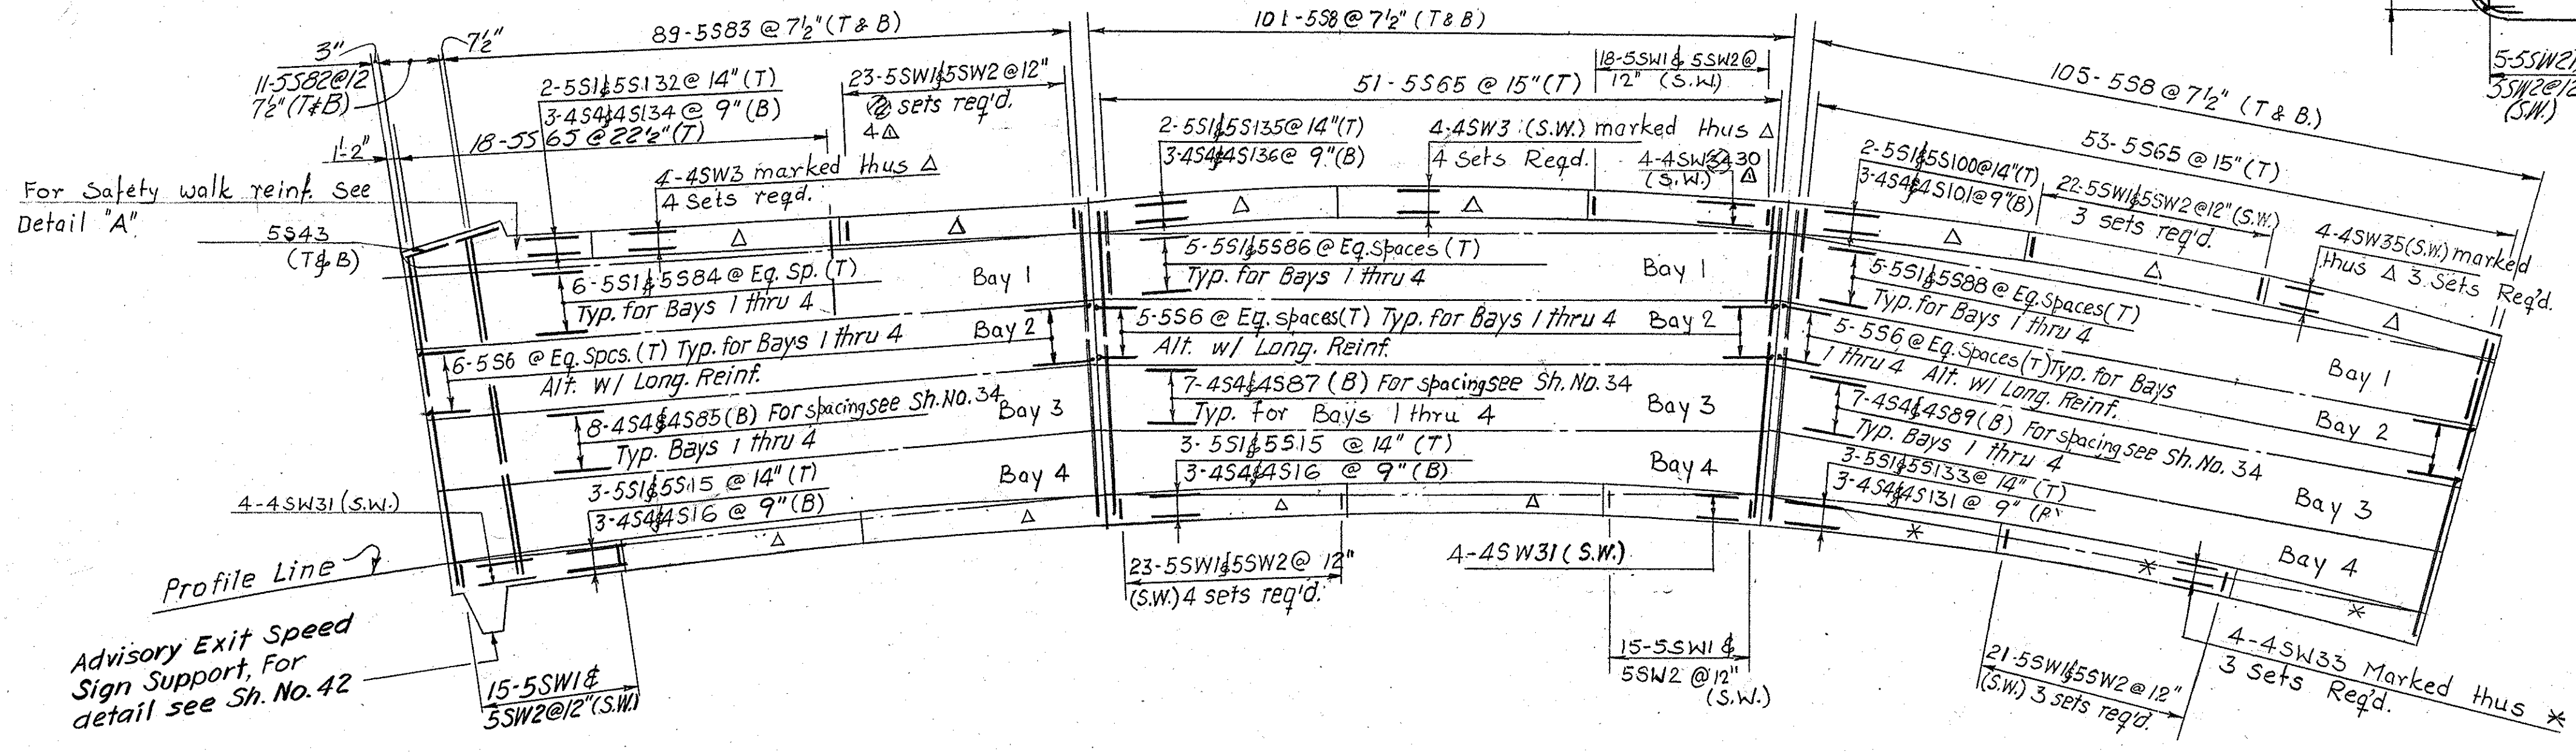 3"
7½"
11-5S82@12
7½"(T&B)
89-5S83 @ 7½"(T & B)
2-5S1&5S132 @ 14"(T)
3-4S4&4S134 @ 9"(B)
18-5S65 @ 22½"(T)
1'-2"
23-5SW1&5SW2 @ 12"
sets req'd.
4 △
4-4SW3 marked thus △
4 sets reqd.
For Safety walk reinf. See
Detail "A"
5S43
(T&B)
6-5S1&5S84 @ Eq. Sp. (T)
Typ. for Bays 1 thru 4
Bay 1
Bay 2
6-5S6 @ Eq. Spcs. (T) Typ. for Bays 1 thru 4
Alt. w/ Long. Reinf.
8-4S4&4S85 (B) For spacing see Sh. No. 34
Typ. Bays 1 thru 4
Bay 3
3-5S1&5S15 @ 14"(T)
3-4S4&4S16 @ 9"(B)
Bay 4
4-4SW31 (S.W.)
Profile Line
Advisory Exit Speed
Sign Support, For
detail see Sh. No. 42
15-5SW1 &
5SW2@12"(S.W.)
101-5S8 @ 7½" (T & B)
18-5SW1& 5SW2 @
12" (S.W.)
51-5S65 @ 15"(T)
2-5S1&5S135@ 14"(T)
3-4S4&4S136@ 9"(B)
4-4SW3 (S.W.) marked thus △
4 Sets Reqd.
30
(S.W.) △
5-5S1&5S86 @ Eq. Spaces (T)
Typ. for Bays 1 thru 4
Bay 1
5-5S6 @ Eq. spaces(T) Typ. for Bays 1 thru 4
Alt. w/ Long. Reinf.
Bay 2
7-4S4&4S87 (B) For spacing see Sh. No. 34
Typ. for Bays 1 thru 4
Bay 3
3-5S1&5S15 @ 14" (T)
3-4S4&4S16 @ 9"(B)
Bay 4
23-5SW1&5SW2 @ 12"
(S.W.) 4 sets req'd.
4-4SW31 (S.W.)
15-5SW1 &
5SW2 @ 12"
(S.W.)
105-5S8 @ 7½" (T & B.)
53-5S65 @ 15"(T)
2-5S1&5S100@14"(T)
3-4S4&4S101@9"(B)
22-5SW1&5SW2@12"(S.W.)
3 sets req'd.
4-4SW35(S.W.) marked
thus △ 3 Sets Req'd.
5-5S1&5S88 @ Eq. Spaces(T)
Typ. for Bays 1 thru 4
Bay 1
5-5S6 @ Eq. Spaces(T) Typ. for Bays
1 thru 4 Alt. w/ Long. Reinf.
Bay 2
7-4S4&4S89 (B) For spacing see Sh. No. 34
Typ. Bays 1 thru 4
Bay 3
3-5S1&5S133@ 14"(T)
3-4S4&4S131 @ 9"
Bay 4
21-5SW1&5SW2 @ 12"
(S.W.) 3 sets req'd.
4-4SW33 Marked thus *
3 Sets Req'd.
5-5SW21
5SW2@12
(S.W.)